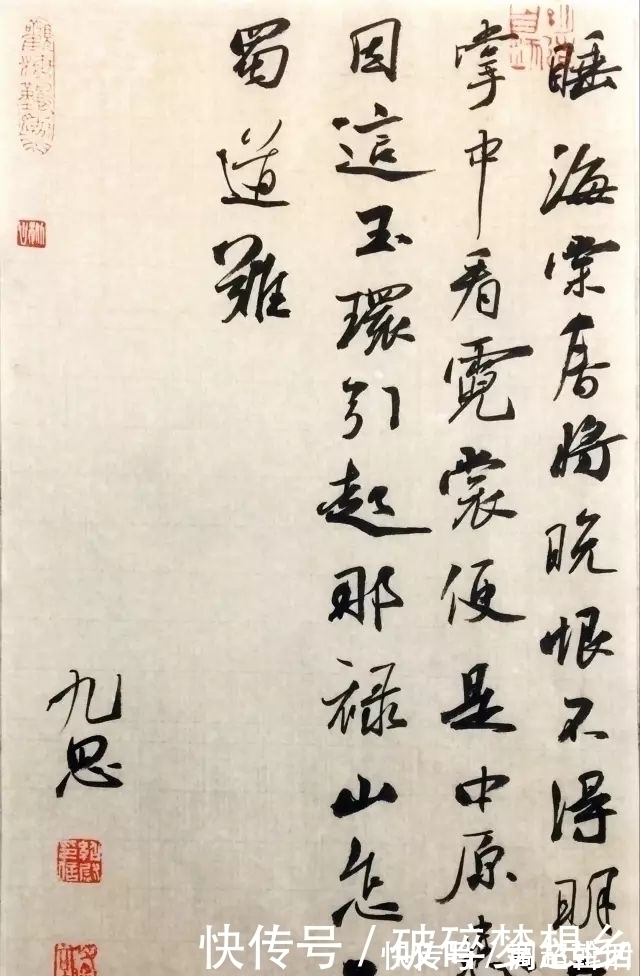 睡海棠春将晚恨不得明
掌中看霓裳便是中原
因這玉環引起那禄山怎
蜀道難
九思
快传号 / 破碎梦想乡
快传号 /